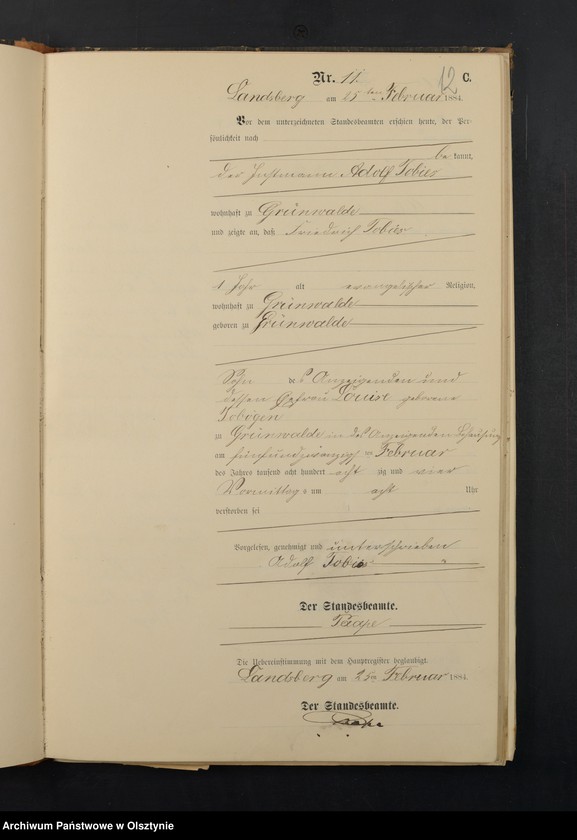 12
Nr. 11. C.
Landsberg am 25ten Februar 1884.
Vor dem unterzeichneten Standesbeamten erschien heute, der Per-
sönlichkeit nach
be kannt,
der Instmann Adolf Tobies
wohnhaft zu Grünwalde
und zeigte an, daß Friedrich Tobies
1 Jahr alt evangelischer Religion,
wohnhaft zu Grünwalde
geboren zu Grünwalde
Sohn des Anzeigenden und
dessen Ehefrau Louise geborene
zu Grünwalde in des Anzeigenden Behausung
am fünfundzwanzig ten Februar
des Jahres tausend acht hundert acht zig und vier
Vormittags um acht Uhr
verstorben sei
Vorgelesen, genehmigt und unterschrieben
Adolf Tobies
Der Standesbeamte.
Die Uebereinstimmung mit dem Hauptregister beglaubigt.
Landsberg am 25ten Februar 1884
Der Standesbeamte.
Archiwum Państwowe w Olsztynie